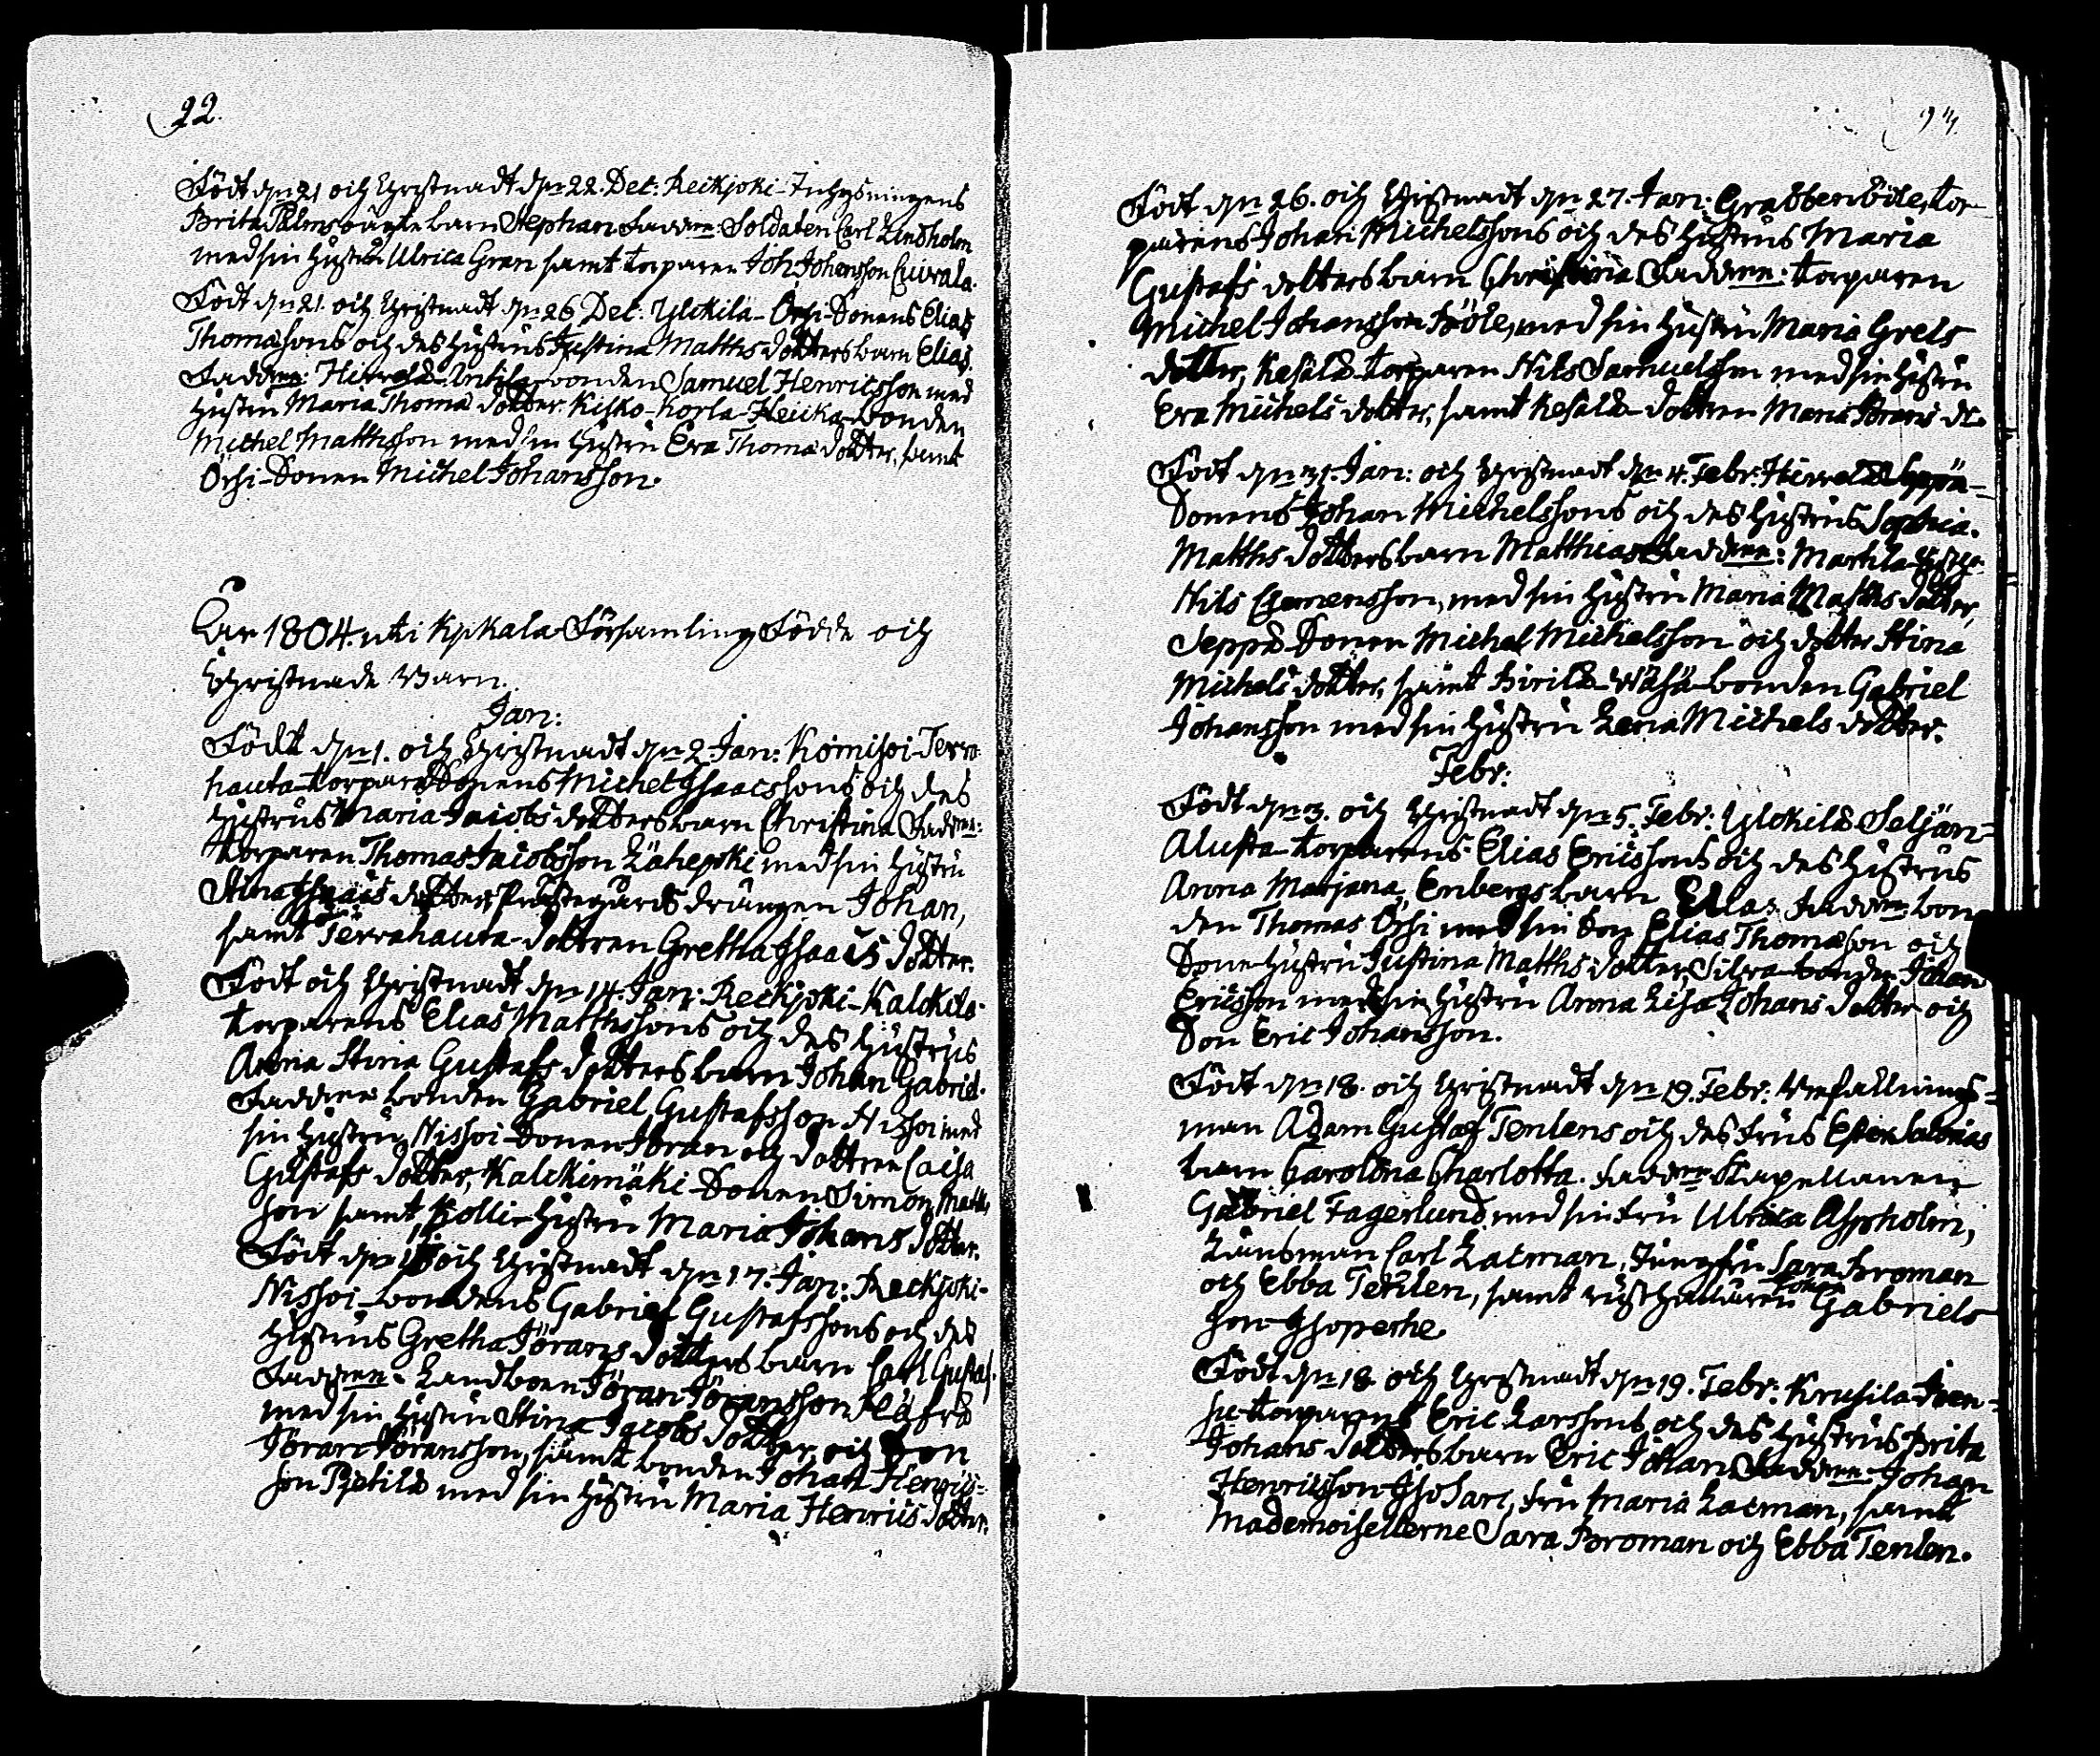 22.
Född d. 21 och Christnadt d. 22. Dec: Reckjoki-Inhysningens
Brita Palms oägta barn Stephan Faddrar: Soldaten Carl Lindholm
med sin hustru Ulrica Gran samt torparen Joh: Johansson Cuivala.
Född d. 21. och Christnadt d. 26 Dec: Ylckilä-Orsi-Sonens Elias
Thomæsons och des hustrus Justina Matths dotters barn Elias.
Faddrar: Hirvelä-Anttila-bonden Samuel Henricsson med
hustru Maria Thomæ dotter. Kisko-Korla-Heicka-bonden
Michel Matthsson med sin hustru Eva Thomæ dotter, samt
Orsi-Sonen Michel Johansson.
År 1804. uti Kykala Församling Födde och
Christnade Barn.
Jan:
Född d. 1. och Christnadt d. 2. Jan: Komisoi-Terra-
hauta-torpare Sonens Michel Isaacssons och des
hustrus Maria Jacobs dotters barn Christina Faddrar:
torparen Thomas Jacobsson Lähepeski med sin hustru
Stina Isaacs dotter, Prästegårds drängen Johan,
samt Terrahauta-dottren Gretha Isaacs dotter.
Född och Christnadt d. 14. Jan: Reckjoki-Kalckila-
torparens Elias Matthssons och des hustrus
Anna Stina Gustafs dotters barn Johan Gabriel.
Faddrar bonden Gabriel Gustafsson Nissoi med
sin hustru, Nissoi-Sonen Jöran och dottren Caisa
Gustafs dotter, Kalckimäki-Sonen Simon Matths
son samt Kolli-hustrun Maria Johans dotter.
Född d. och Christnadt d. 17. Jan: Reckjoki-
Nissoi-bondens Gabriel Gustafssons och des
hustrus Gretha Jörans dotters barn Carl Gustaf.
Faddrar: Landboen Jöran Jöransson
med sin hustru Stina Jacobs dotter, och Son
Jöran Jöransson, samt bonden Johan Henrics-
son Pjetilä med sin hustru Maria Henrics dotter.
Född d. 26. och Christnadt d. 27. Jan: Grabbenböle, tor-
parens Johan Michelssons och des hustrus Maria
Gustafs dotters barn Christina Faddrar: torparen
Michel Johansson Böle, med sin hustru Maria Grels
dotter, Kesälä-torparen Nils Samuelsson med sin hustru
Eva Michels dotter, samt Kesälä-dottren Maria Jörans dr.
Född d. 31. Jan: och Christnadt d. 4. Febr: Hirvelä Seppä-
Sonens Johan Michelssons och des hustrus Sophia
Matths dotters barn Matthias Faddrar: Martila
Nils Clemensson, med sin hustru Maria Matths dotter,
Seppä-Sonen Michel Michelsson och dotter Stina
Michels dotter, samt Birilä-Wähä-bonden Gabriel
Johansson med sin hustru Lena Michels dotter.
Febr:
Född d. 3. och Christnadt d. 5. Febr: Ylckilä Seljän-
Alusta-torparens Elias Ericssons och des hustrus
Anna Marjana Enbergs barn Elias. Faddrar bon-
den Thomas Orsi med sin Son Elias Thomæson och
Sone-hustru Justina Matths dotter, Silva-bonden Johan
Ericsson med sin hustru Anna Lisa Johans dotter och
Son Eric Johansson.
Född d. 18. och Christnadt d. 19. Febr: Befallnings-
man Adam Gustaf Tenlens och des Frus
barn Carolina Charlotta. Faddrar Kapellanen
Gabriel Fagerlund med sin Fru Ulrica Aspholm,
Länsman Carl Lacman, Jungfru Sara Broman
och Ebba Tenlen, samt rusthållaren Johan Gabriels-
son Isoperhe.
Född d. 18 och Christnadt d. 19. Febr: Krusila
torparens Eric Larssons och des hustrus Brita
Johans dotters barn Eric Johan Faddrar: Johan
Henricsson Isosari, Fru Maria Lacman, samt
Mademoisellerne Sara Broman och Ebba Tenlen.